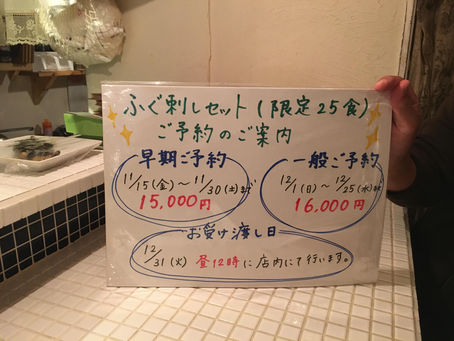 ふぐ刺しセット(限定25食)
ご予約のご案内
早期ご予約
11/15(金)～11/30(土)まで
15,000円
一般ご予約
12/1(日)～12/25(水)まで
16,000円
お受け渡し日
12/31(火) 昼12時に店内にて行います。